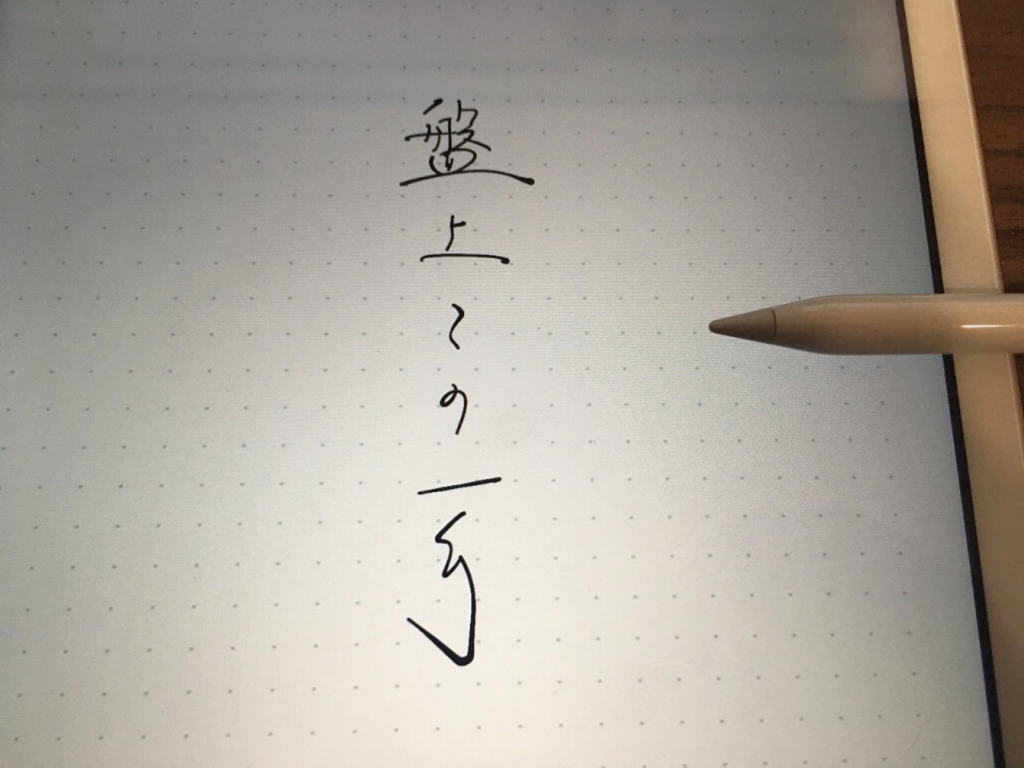 盤上この一手